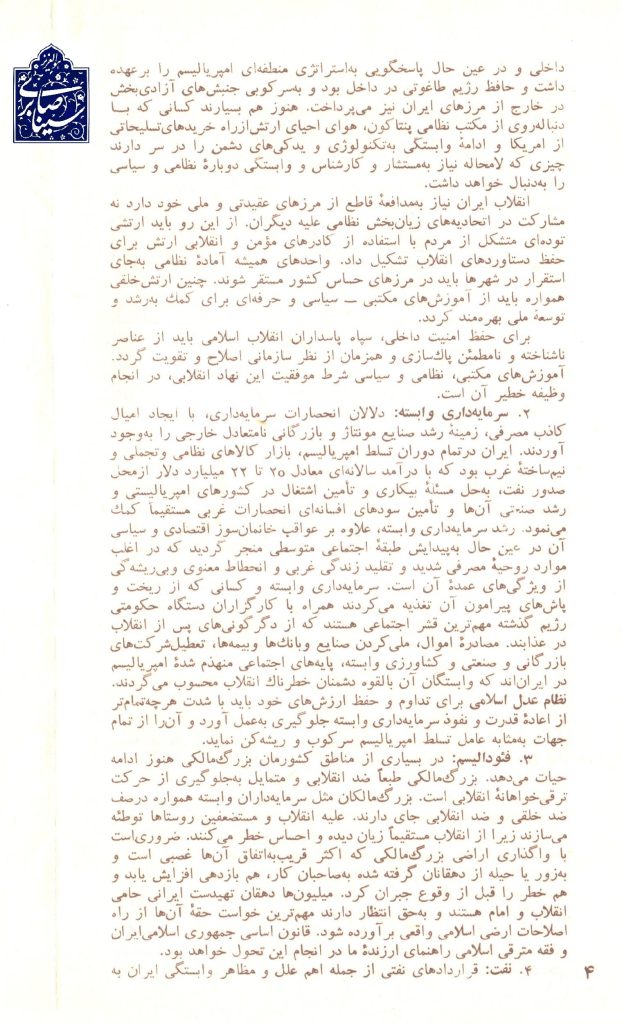 داخلی و در عین حال پاسخگویی به‌استراتژی منطقه‌ای امپریالیسم را برعهده
داشت و حافظ رژیم طاغوتی در داخل بود و به‌سرکوبی جنبش‌های آزادی‌بخش
در خارج از مرزهای ایران نیز می‌پرداخت. هنوز هم بسیارند کسانی که بــا
دنباله‌روی از مکتب نظامی پنتاکون، هوای احیای ارتش‌ازراه خریدهای‌تسلیحاتی
از امریکا و ادامهٔ وابستگی به‌تکنولوژی و یدکی‌های دشمن را در سر دارند
چیزی که لامحاله نیاز به‌مستشار و کارشناس و وابستگی دوبارهٔ نظامی و سیاسی
را به‌دنبال خواهد داشت.
انقلاب ایران نیاز به‌مدافعهٔ قاطع از مرزهای عقیدتی و ملی خود دارد نه
مشارکت در اتحادیه‌های زیان‌بخش نظامی علیه دیگران. از این رو باید ارتشی
توده‌ای متشکل از مردم با استفاده از کادرهای مؤمن و انقلابی ارتش برای
حفظ دستاوردهای انقلاب تشکیل داد. واحدهای همیشه آمادهٔ نظامی به‌جای
استقرار در شهرها باید در مرزهای حساس کشور مستقر شوند. چنین ارتش‌خلقی
همواره باید از آموزش‌های مکتبی ــ سیاسی و حرفه‌ای برای کمك به‌رشد و
توسعهٔ ملی بهره‌مند کردد.
برای حفظ امنیت داخلی، سپاه پاسداران انقلاب اسلامی باید از عناصر
ناشناخته و نامطمئن پاك‌سازی و همزمان از نظر سازمانی اصلاح و تقویت گردد.
آموزش‌های مکتبی، نظامی و سیاسی شرط موفقیت این نهاد انقلابی، در انجام
وظیفه خطیر آن است.
۲. سرمایه‌داری وابسته: دلالان انحصارات سرمایه‌داری، با ایجاد امیال
کاذب مصرفی، زمینهٔ رشد صنایع مونتاژ و بازرگانی نامتعادل خارجی را به‌وجود
آوردند. ایران درتمام دوران تسلط امپریالیسم، بازار کالاهای نظامی وتجملی و
نیم‌ساختهٔ غرب بود که با درآمد سالانه‌ای معادل ۲۰ تا ۲۲ میلیارد دلار ازمحل
صدور نفت، به‌حل مسئلهٔ بیکاری و تأمین اشتغال در کشورهای امپریالیستی و
رشد صنعتی آن‌ها و تأمین سودهای افسانه‌ای انحصارات غربی مستقیماً کمك
می‌نمود. رشد سرمایه‌داری وابسته، علاوه بر عواقب خانمان‌سوز اقتصادی و سیاسی
آن در عین حال به‌پیدایش طبقهٔ اجتماعی متوسطی منجر گردید که در اغلب
موارد روحیهٔ مصرفی شدید و تقلید زندگی غربی و انحطاط معنوی وبی‌ریشه‌گی
از ویژگی‌های عمدهٔ آن است. سرمایه‌داری وابسته و کسانی که از ریخت و
پاش‌های پیرامون آن تغذیه می‌کردند همراه با کارگزاران دستگاه حکومتی
رژیم گذشته مهم‌ترین قشر اجتماعی هستند که از دگرگونی‌های پس از انقلاب
در عذابند. مصادرهٔ اموال، ملی‌کردن صنایع وبانك‌ها وبیمه‌ها، تعطیل‌شرکت‌های
بازرگانی و صنعتی و کشاورزی وابسته، پایه‌های اجتماعی منهدم شدهٔ امپریالیسم
در ایران‌اند که وابستگان آن بالقوه دشمنان خطرناك انقلاب محسوب می‌گردند.
نظام عدل اسلامی برای تداوم و حفظ ارزش‌های خود باید با شدت هرچه‌تمام‌تر
از اعادهٔ قدرت و نفوذ سرمایه‌داری وابسته جلوگیری به‌عمل آورد و آن‌را از تمام
جهات به‌مثابه عامل تسلط امپریالیسم سرکوب و ریشه‌کن نماید.
۳. فئودالیسم: در بسیاری از مناطق کشورمان بزرگ‌مالکی هنوز ادامه
حیات می‌دهد. بزرگ‌مالکی طبعاً ضد انقلابی و متمایل به‌جلوگیری از حرکت
ترقی‌خواهانهٔ انقلابی است. بزرگ‌مالکان مثل سرمایه‌داران وابسته همواره درصف
ضد خلقی و ضد انقلابی جای دارند. علیه انقلاب و مستضعفین روستاها توطئه
می‌سازند زیرا از انقلاب مستقیماً زیان دیده و احساس خطر می‌کنند. ضروری‌است
با واگذاری اراضی بزرگ‌مالکی که اکثر قریب‌به‌اتفاق آن‌ها غصبی است و
به‌زور یا حیله از دهقانان گرفته شده به‌صاحبان کار، هم بازدهی افزایش یابد و
هم خطر را قبل از وقوع جبران کرد. میلیون‌ها دهقان تهیدست ایرانی حامی
انقلاب و امام هستند و به‌حق انتظار دارند مهم‌ترین خواست حقهٔ آن‌ها از راه
اصلاحات ارضی اسلامی واقعی برآورده شود. قانون اساسی جمهوری اسلامی‌ایران
و فقه مترقی اسلامی راهنمای ارزندهٔ ما در انجام این تحول خواهد بود.
۴. نفت: قراردادهای نفتی از جمله اهم علل و مظاهر وابستگی ایران به
۴